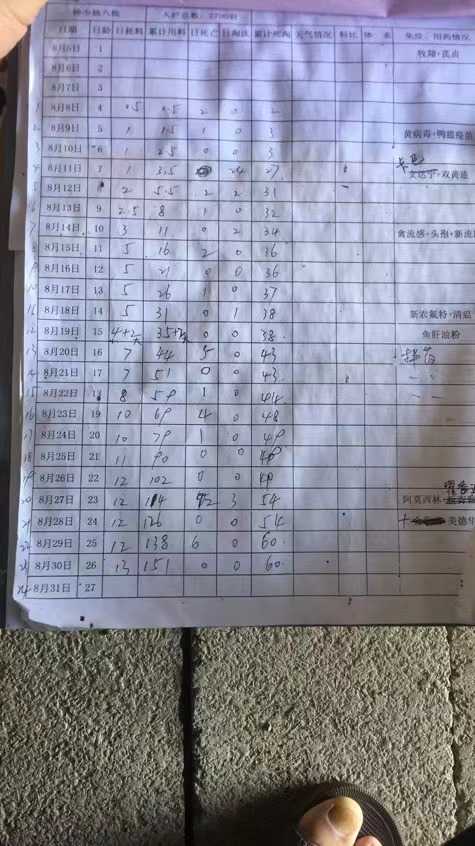 日期 日龄 日耗料 累计用料 日死亡 日淘汰 累计死淘 天气情况 料比 体 系 免疫、用药情况
8月5日 1 牧翔+芪贞
8月6日 2
8月7日 3
1 8月8日 4 0.5 0.5 2 0 2
2 8月9日 5 1 1.5 1 0 3 黄病毒+鸭瘟疫苗
3 8月10日 6 1 2.5 0 0 3
4 8月11日 7 1 3.5 24 27 +双黄连
5 8月12日 8 2 5.5 2 2 31
6 8月13日 9 2.5 8 1 0 32
7 8月14日 10 3 11 0 2 34 禽流感+头孢+新流
8 8月15日 11 5 16 2 0 36
9 8月16日 12 5 21 0 0 36
10 8月17日 13 5 26 1 0 37
11 8月18日 14 5 31 0 1 38 新农氟特+清瘟
12 8月19日 15 0 0 38 鱼肝油粉
13 8月20日 16 7 44 5 0 43
14 8月21日 17 7 51 0 0 43
15 8月22日 18 8 59 1 0 44
16 8月23日 19 10 69 4 0 48
17 8月24日 20 10 79 1 0 49
18 8月25日 21 11 90 0 0 49
19 8月26日 22 12 102 0 0 49
20 8月27日 23 12 114 2 3 54 阿莫西林
21 8月28日 24 12 126 0 0 54
22 8月29日 25 12 138 6 0 60
23 8月30日 26 13 151 0 0 60
24 8月31日 27